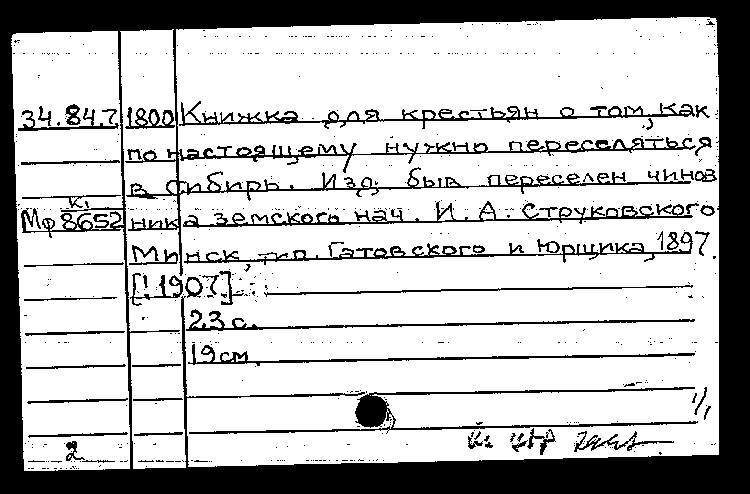 34.84.7 1800 Книжка для крестьян о том, как
по настоящему нужно переселяться
в Сибирь. Изд. быв переселен чинов
К1
Мф 8652 ника земского нач. И. А. Струковского
Минск, тип. Гатовского и Юрщика, 1897.
[! 1907]
23 с.
19 см.
1/1
2